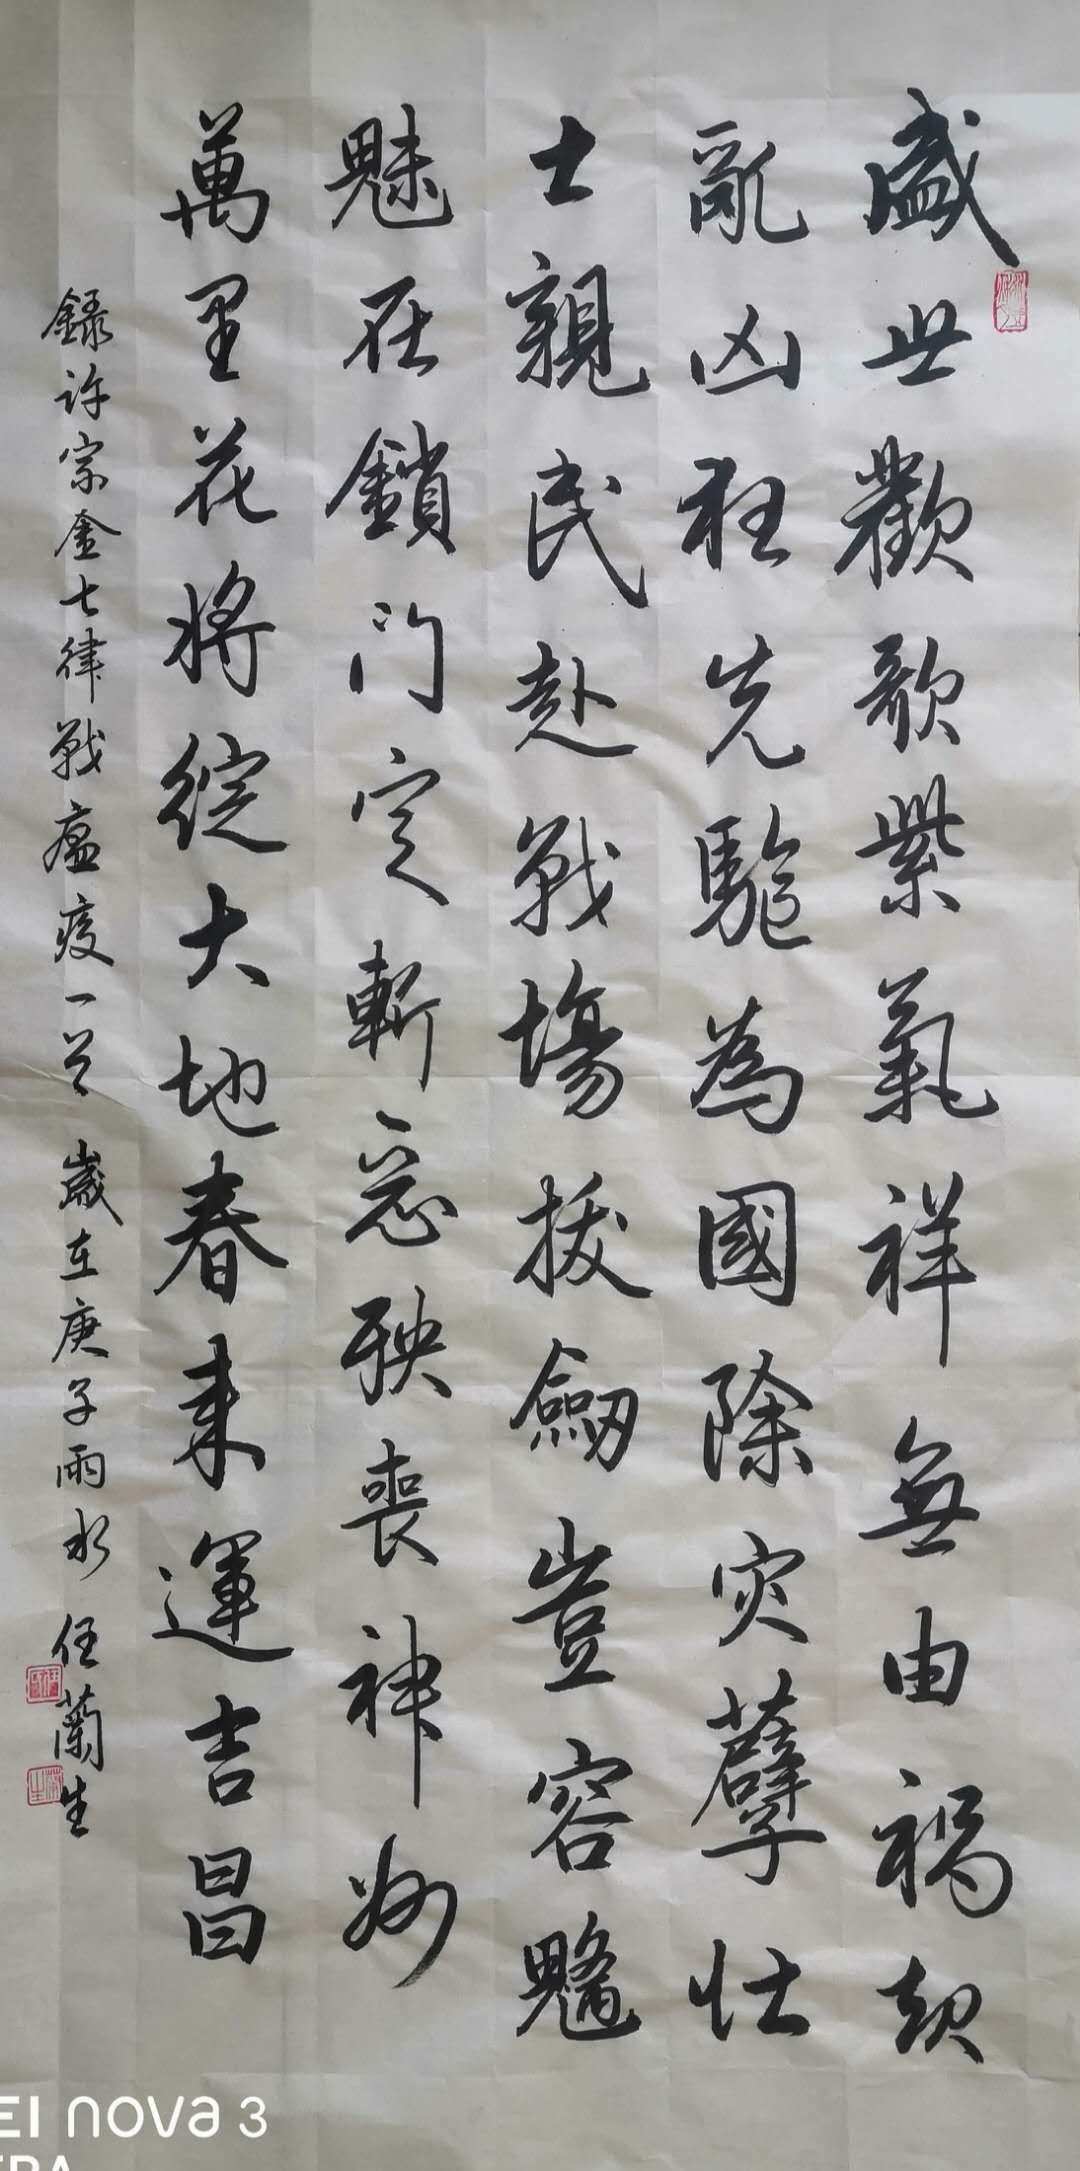 盛世歡歌紫氣祥無由禍起
亂凶狂先驅為國除灾孽壯
士親民赴戰場拔劍豈容魑
魅在鎖門定斬惡殃喪神州
萬里花將綻大地春来運吉昌
錄許宗金七律戰瘟疫一首 歲在庚子雨水 任蘭生
EI nova 3